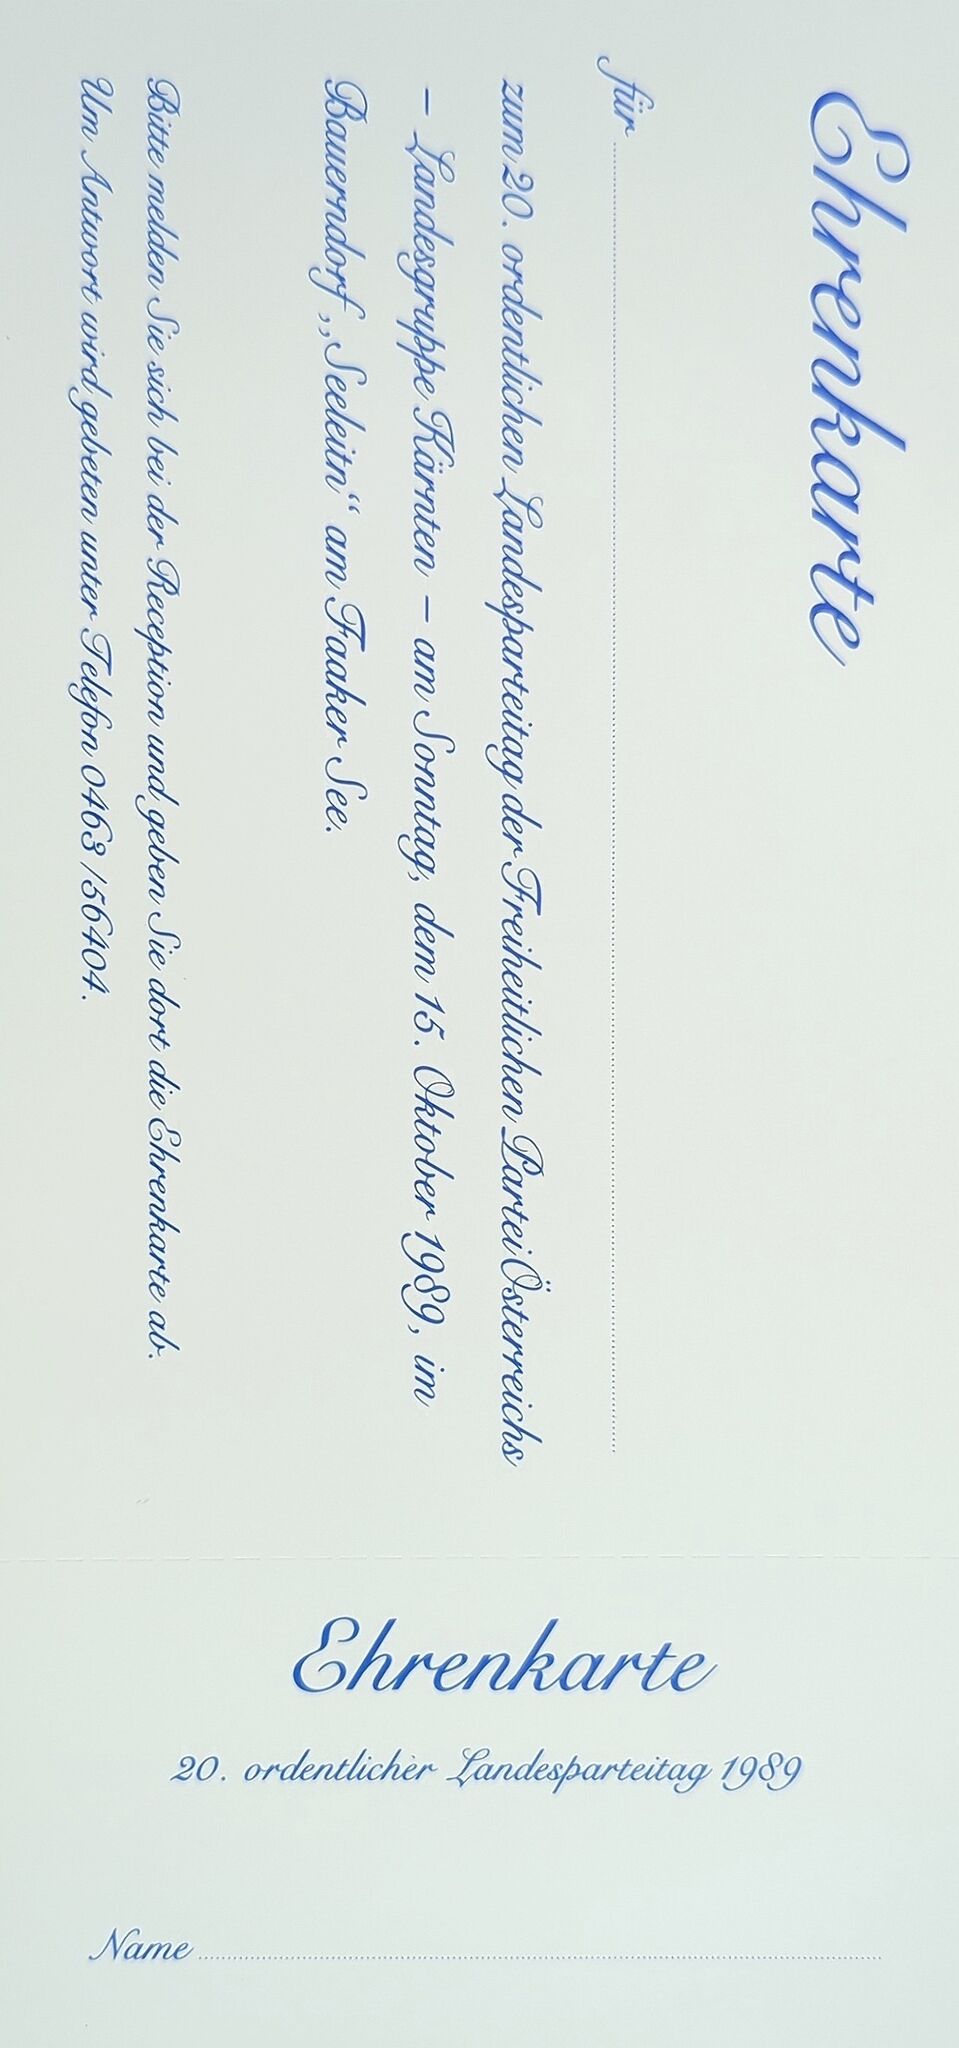 Ehrenkarte
für
zum 20. ordentlichen Landesparteitag der Freiheitlichen Partei Österreichs
– Landesgruppe Kärnten – am Sonntag, dem 15. Oktober 1989, im
Bauerndorf „Seeleitn“ am Faaker See.
Bitte melden Sie sich bei der Reception und geben Sie dort die Ehrenkarte ab.
Um Antwort wird gebeten unter Telefon 0463/56404.
Ehrenkarte
20. ordentlicher Landesparteitag 1989
Name